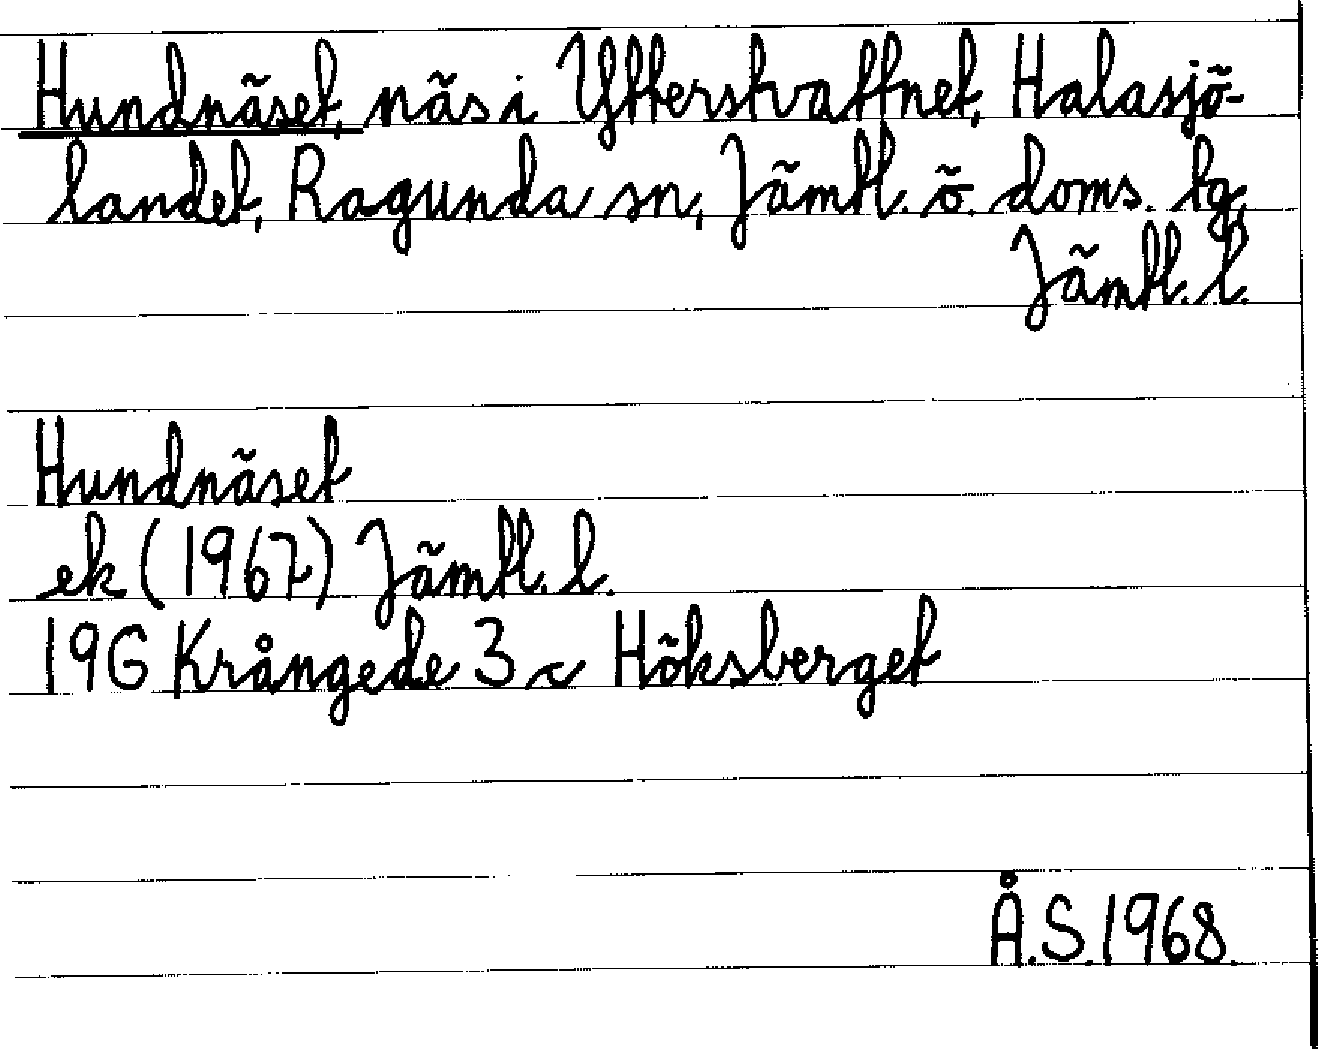 Hundnäset, näs i Ytterstvattnet, Halasjö-
landet, Ragunda sn, Jämtl. ö. doms. tg,
Jämtl. l.
Hundnäset
ek (1967) Jämtl. l.
19G Krångede 3 c Höksberget
Å.S. 1968.